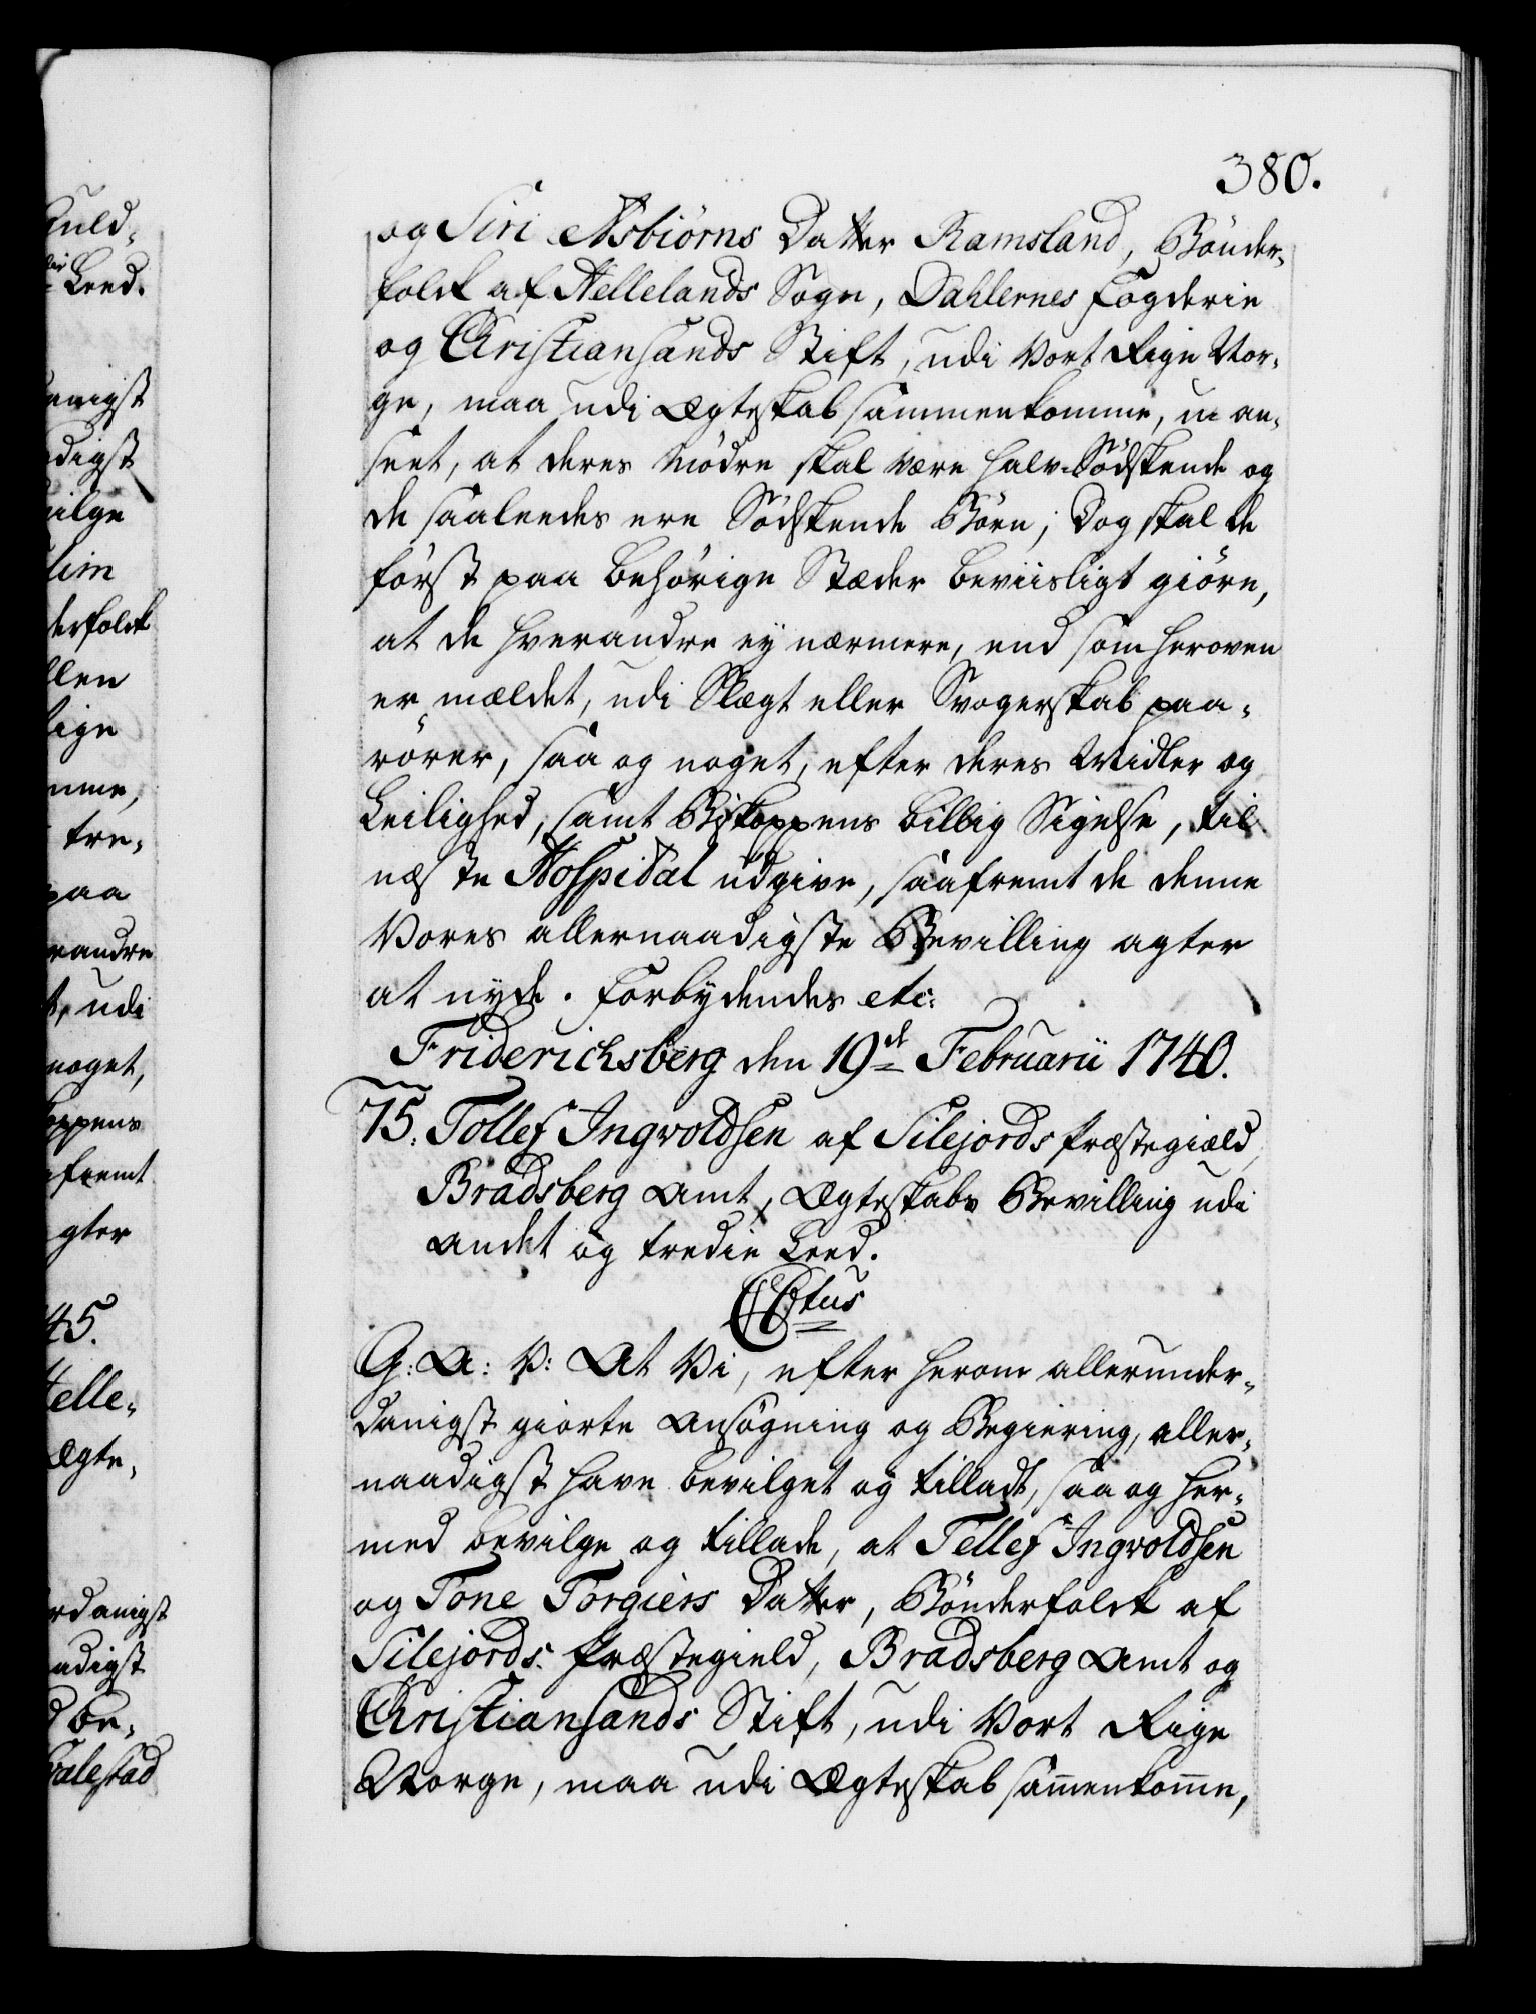 380.
og Siri Asbiörns Datter Ramsland, Bönder-
folck af Hellelands Sogn, Dahlernes Fogderie
og Christiansands Stift, udi Vort Rige Nor-
ge, maa udi Ægteskab sammenkomme, u an-
seet, at deres Mödre skal være halv-Södskende og
de saaleedes ere Södskende Börn; Dog skal de
först paa behörige Stæder beviisligt giöre,
at de hverandre ey nærmere, end som heroven
er mældet, udi Slægt eller Svogerskab paa-
rörer, saa og noget, efter deres Midler og
Leilighed, samt Biskoppens billig Sigelse, til
næste Hospital udgive, saafremt de denne
Vores allernaadigste Bevilling agter
at nyde. Forbydendes etc:
Friderichsberg den 19de Februarii 1740.
75. Tollef Ingvoldsen af Silejords Præstegiæld,
Bradsberg Amt, Ægteskabs Bevilling udi
andet og tredie Leed.
C6tus
G: A: V: At Vi, efter herom allerunder-
danigst giorte Ansögning og Begiering, aller-
naadigst have bevilget og tilladt, saa og her-
med bevilge og tillade, at Tellef Ingvoldsen
og Tone Torgiers Datter, Bönderfolck af
Silejords Præstegield, Bradsberg Amt og
Christiansands Stift, udi Vort Rige
Norge, maa udi Ægteskab sam̄enkom̄e,
Leed.
anigst
digst
vilge
lim
derfolck
llen
Rige
mme,
tre-
paa
randre
udi
noget,
oppens
fremt
gter
45.
Helle-
Ægte-
rdanigst
adigst
be-